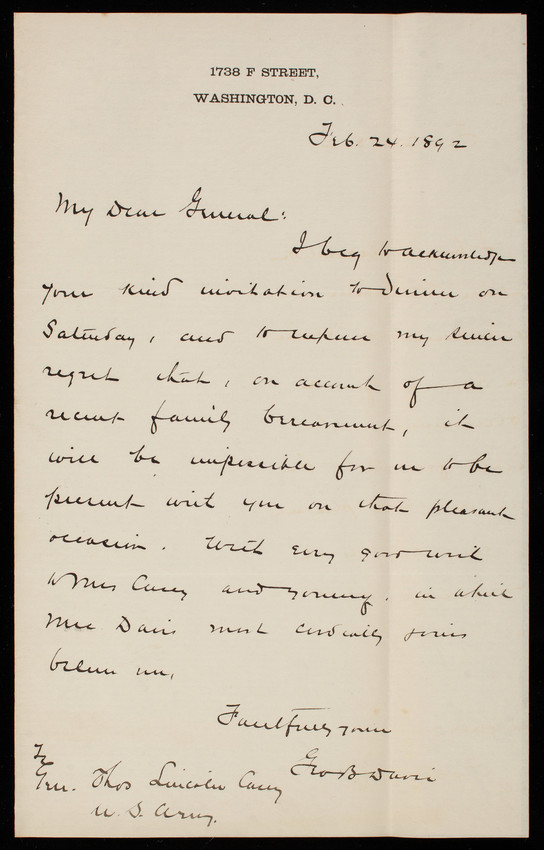 1738 F STREET,
WASHINGTON, D. C.
Feb. 24. 1892
My Dear General:
I beg to acknowledge
your kind invitation to dinner on
Saturday, and to express my sincere
regret that, on account of a
recent family bereavement, it
will be impossible for me to be
present with you on that pleasant
occasion. With every good wish
to Mrs Casey and yourself, in which
Mrs Davis most cordially joins
believe me,
Faithfully yours
Geo B Davis
To
Gen. Thos Lincoln Casey
U. S. Army.